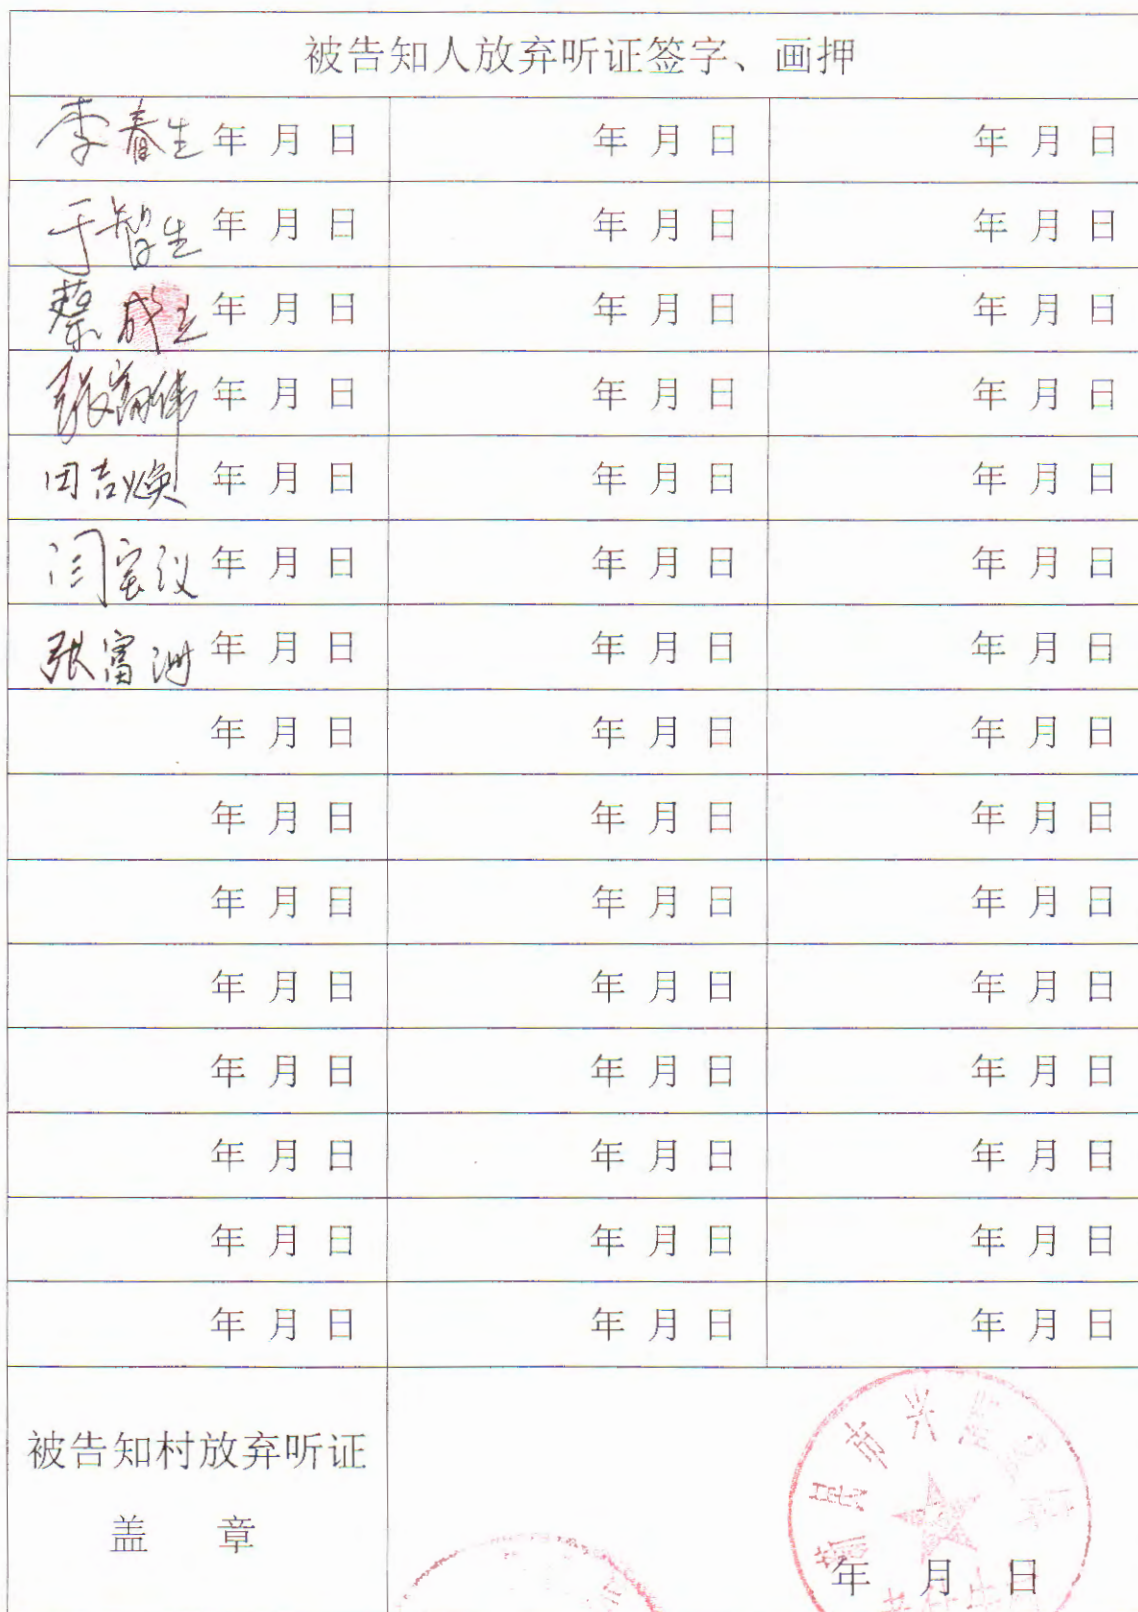 被告知人放弃听证签字、画押
李春生 年 月 日 年 月 日 年 月 日
于智生 年 月 日 年 月 日 年 月 日
蔡成立 年 月 日 年 月 日 年 月 日
张富伟 年 月 日 年 月 日 年 月 日
田吉焕 年 月 日 年 月 日 年 月 日
闫宝仪 年 月 日 年 月 日 年 月 日
张富洲 年 月 日 年 月 日 年 月 日
年 月 日 年 月 日 年 月 日
年 月 日 年 月 日 年 月 日
年 月 日 年 月 日 年 月 日
年 月 日 年 月 日 年 月 日
年 月 日 年 月 日 年 月 日
年 月 日 年 月 日 年 月 日
年 月 日 年 月 日 年 月 日
年 月 日 年 月 日 年 月 日
被告知村放弃听证
盖 章
年 月 日